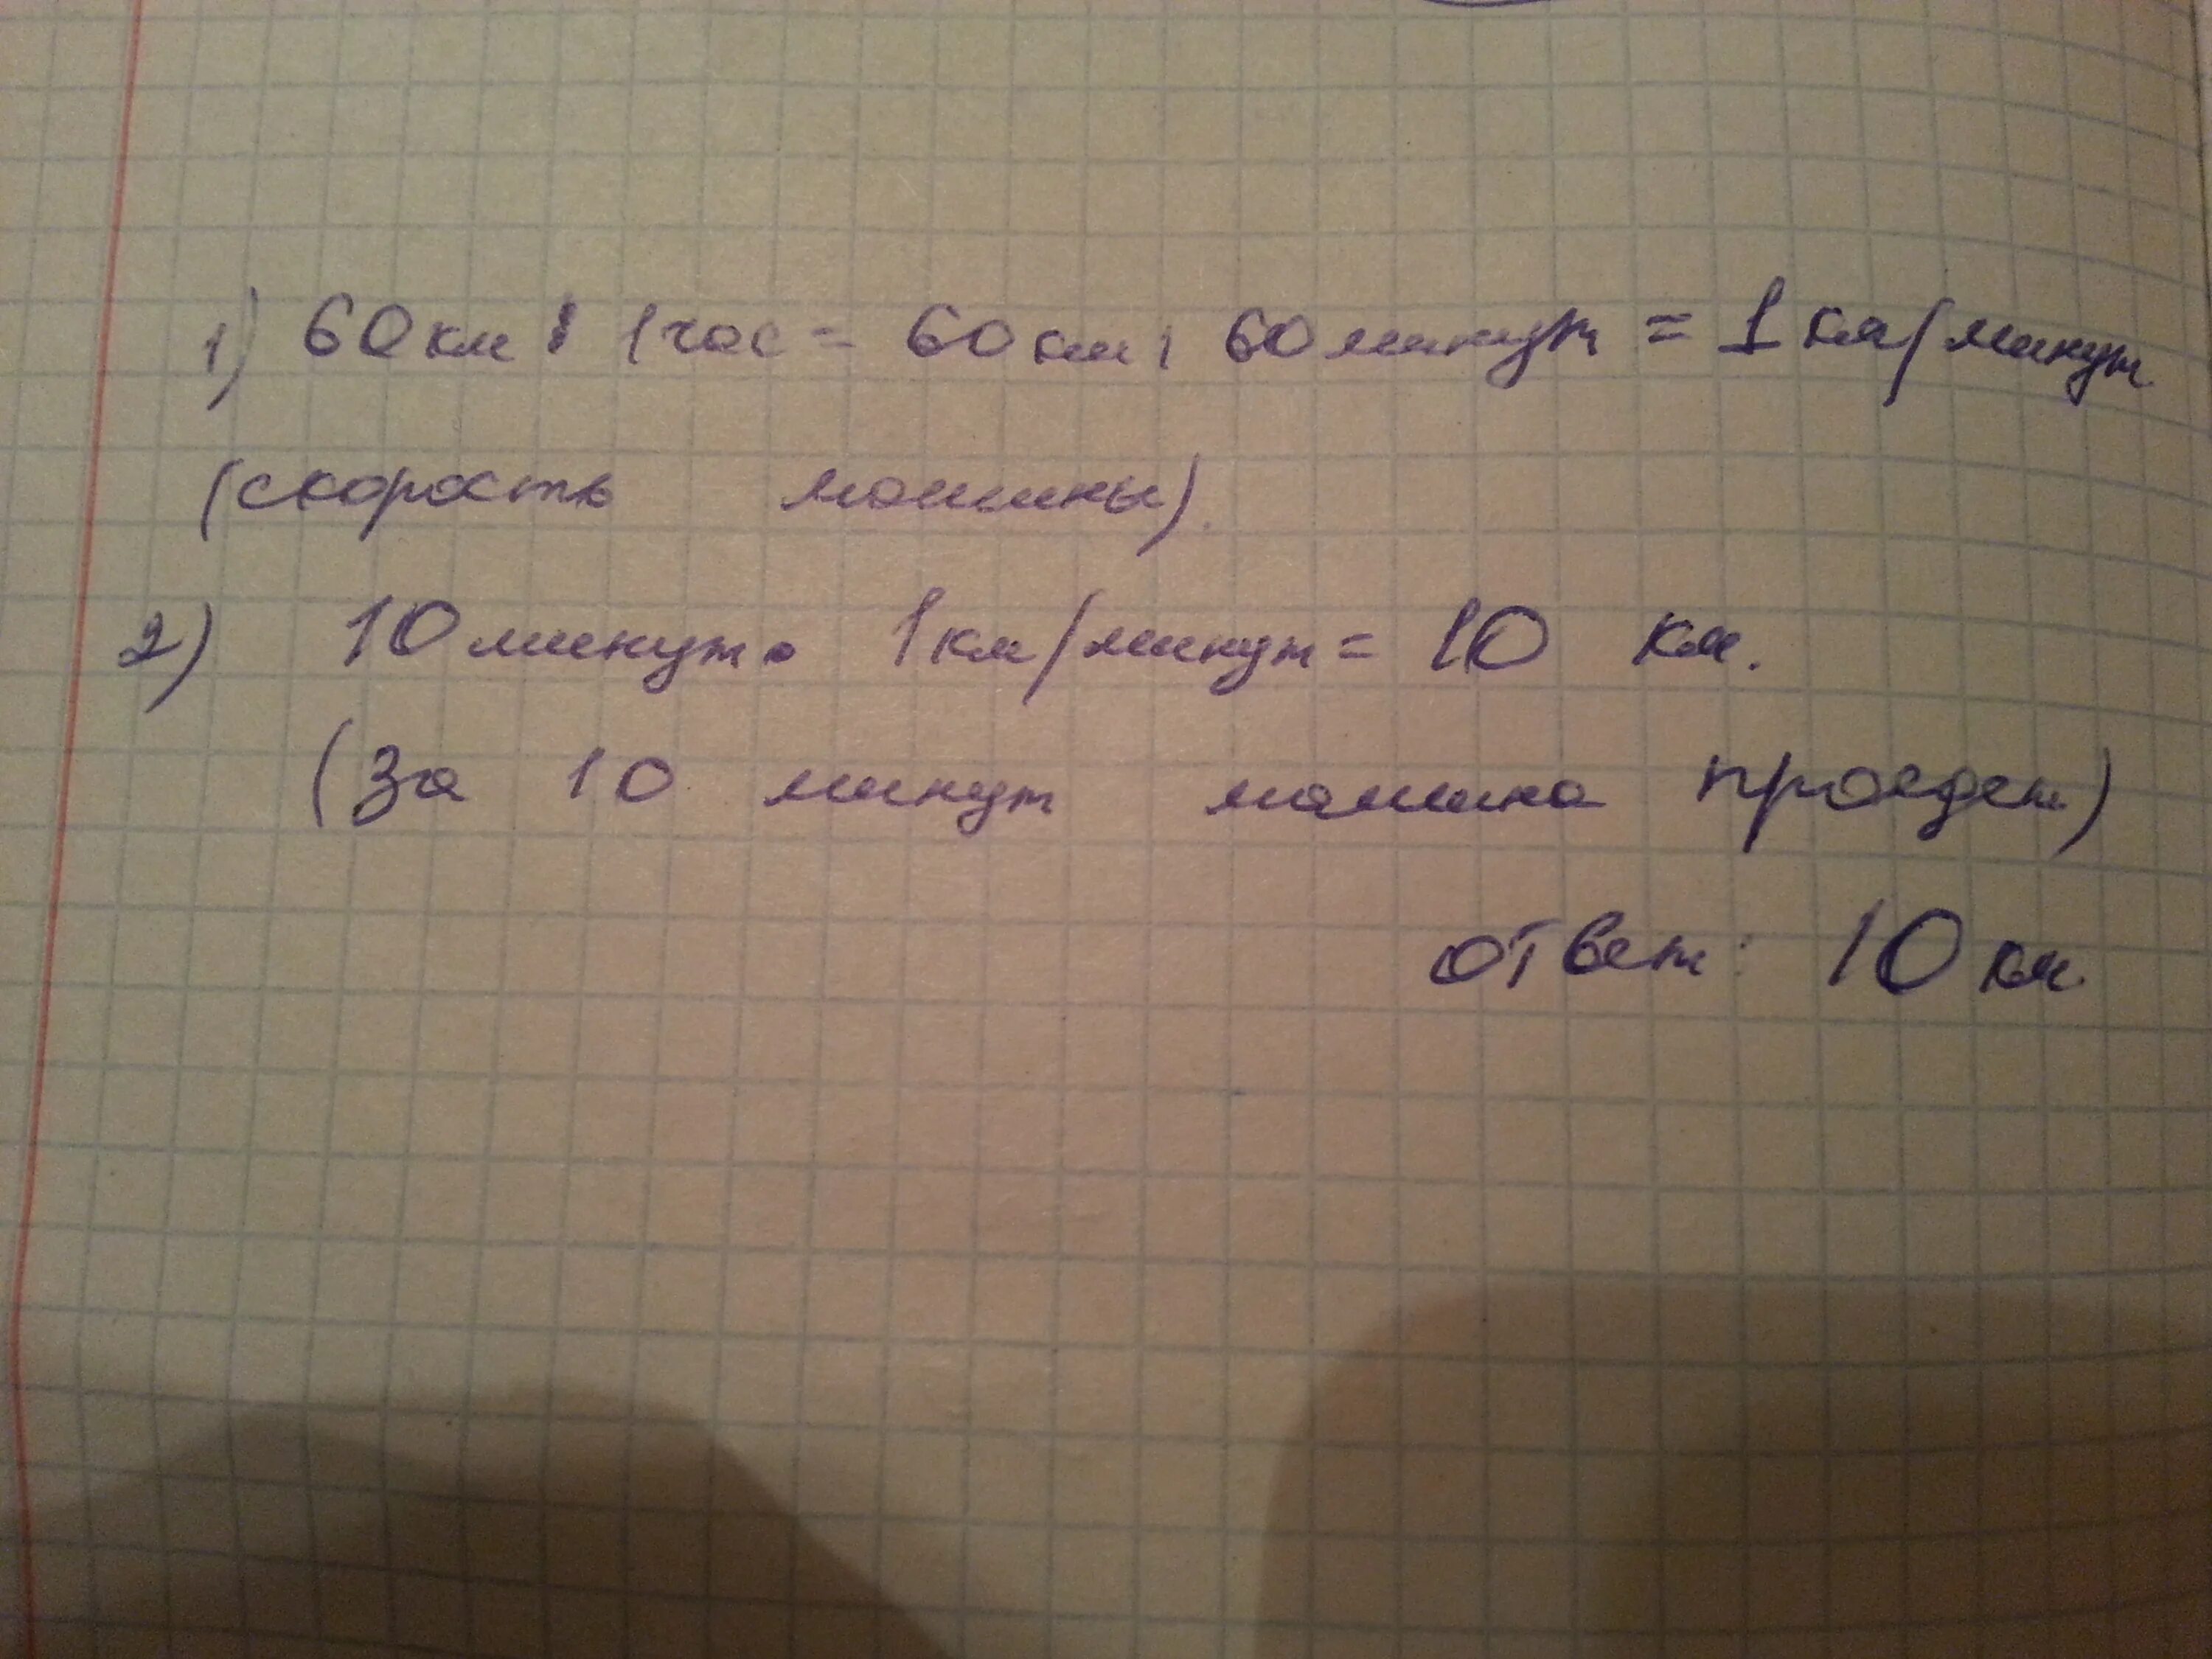 1) 60 км : 1 час = 60 км : 60 минут = 1 км/минут
(скорость машины).
2) 10 минут · 1 км/минут = 10 км.
(За 10 минут машина проедет)
ответ: 10 км